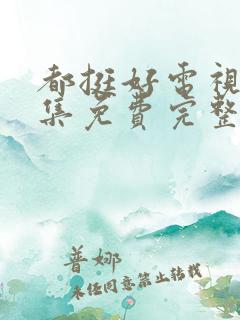 都挺好電視
集免費完整
普娜
未经同意禁止转载